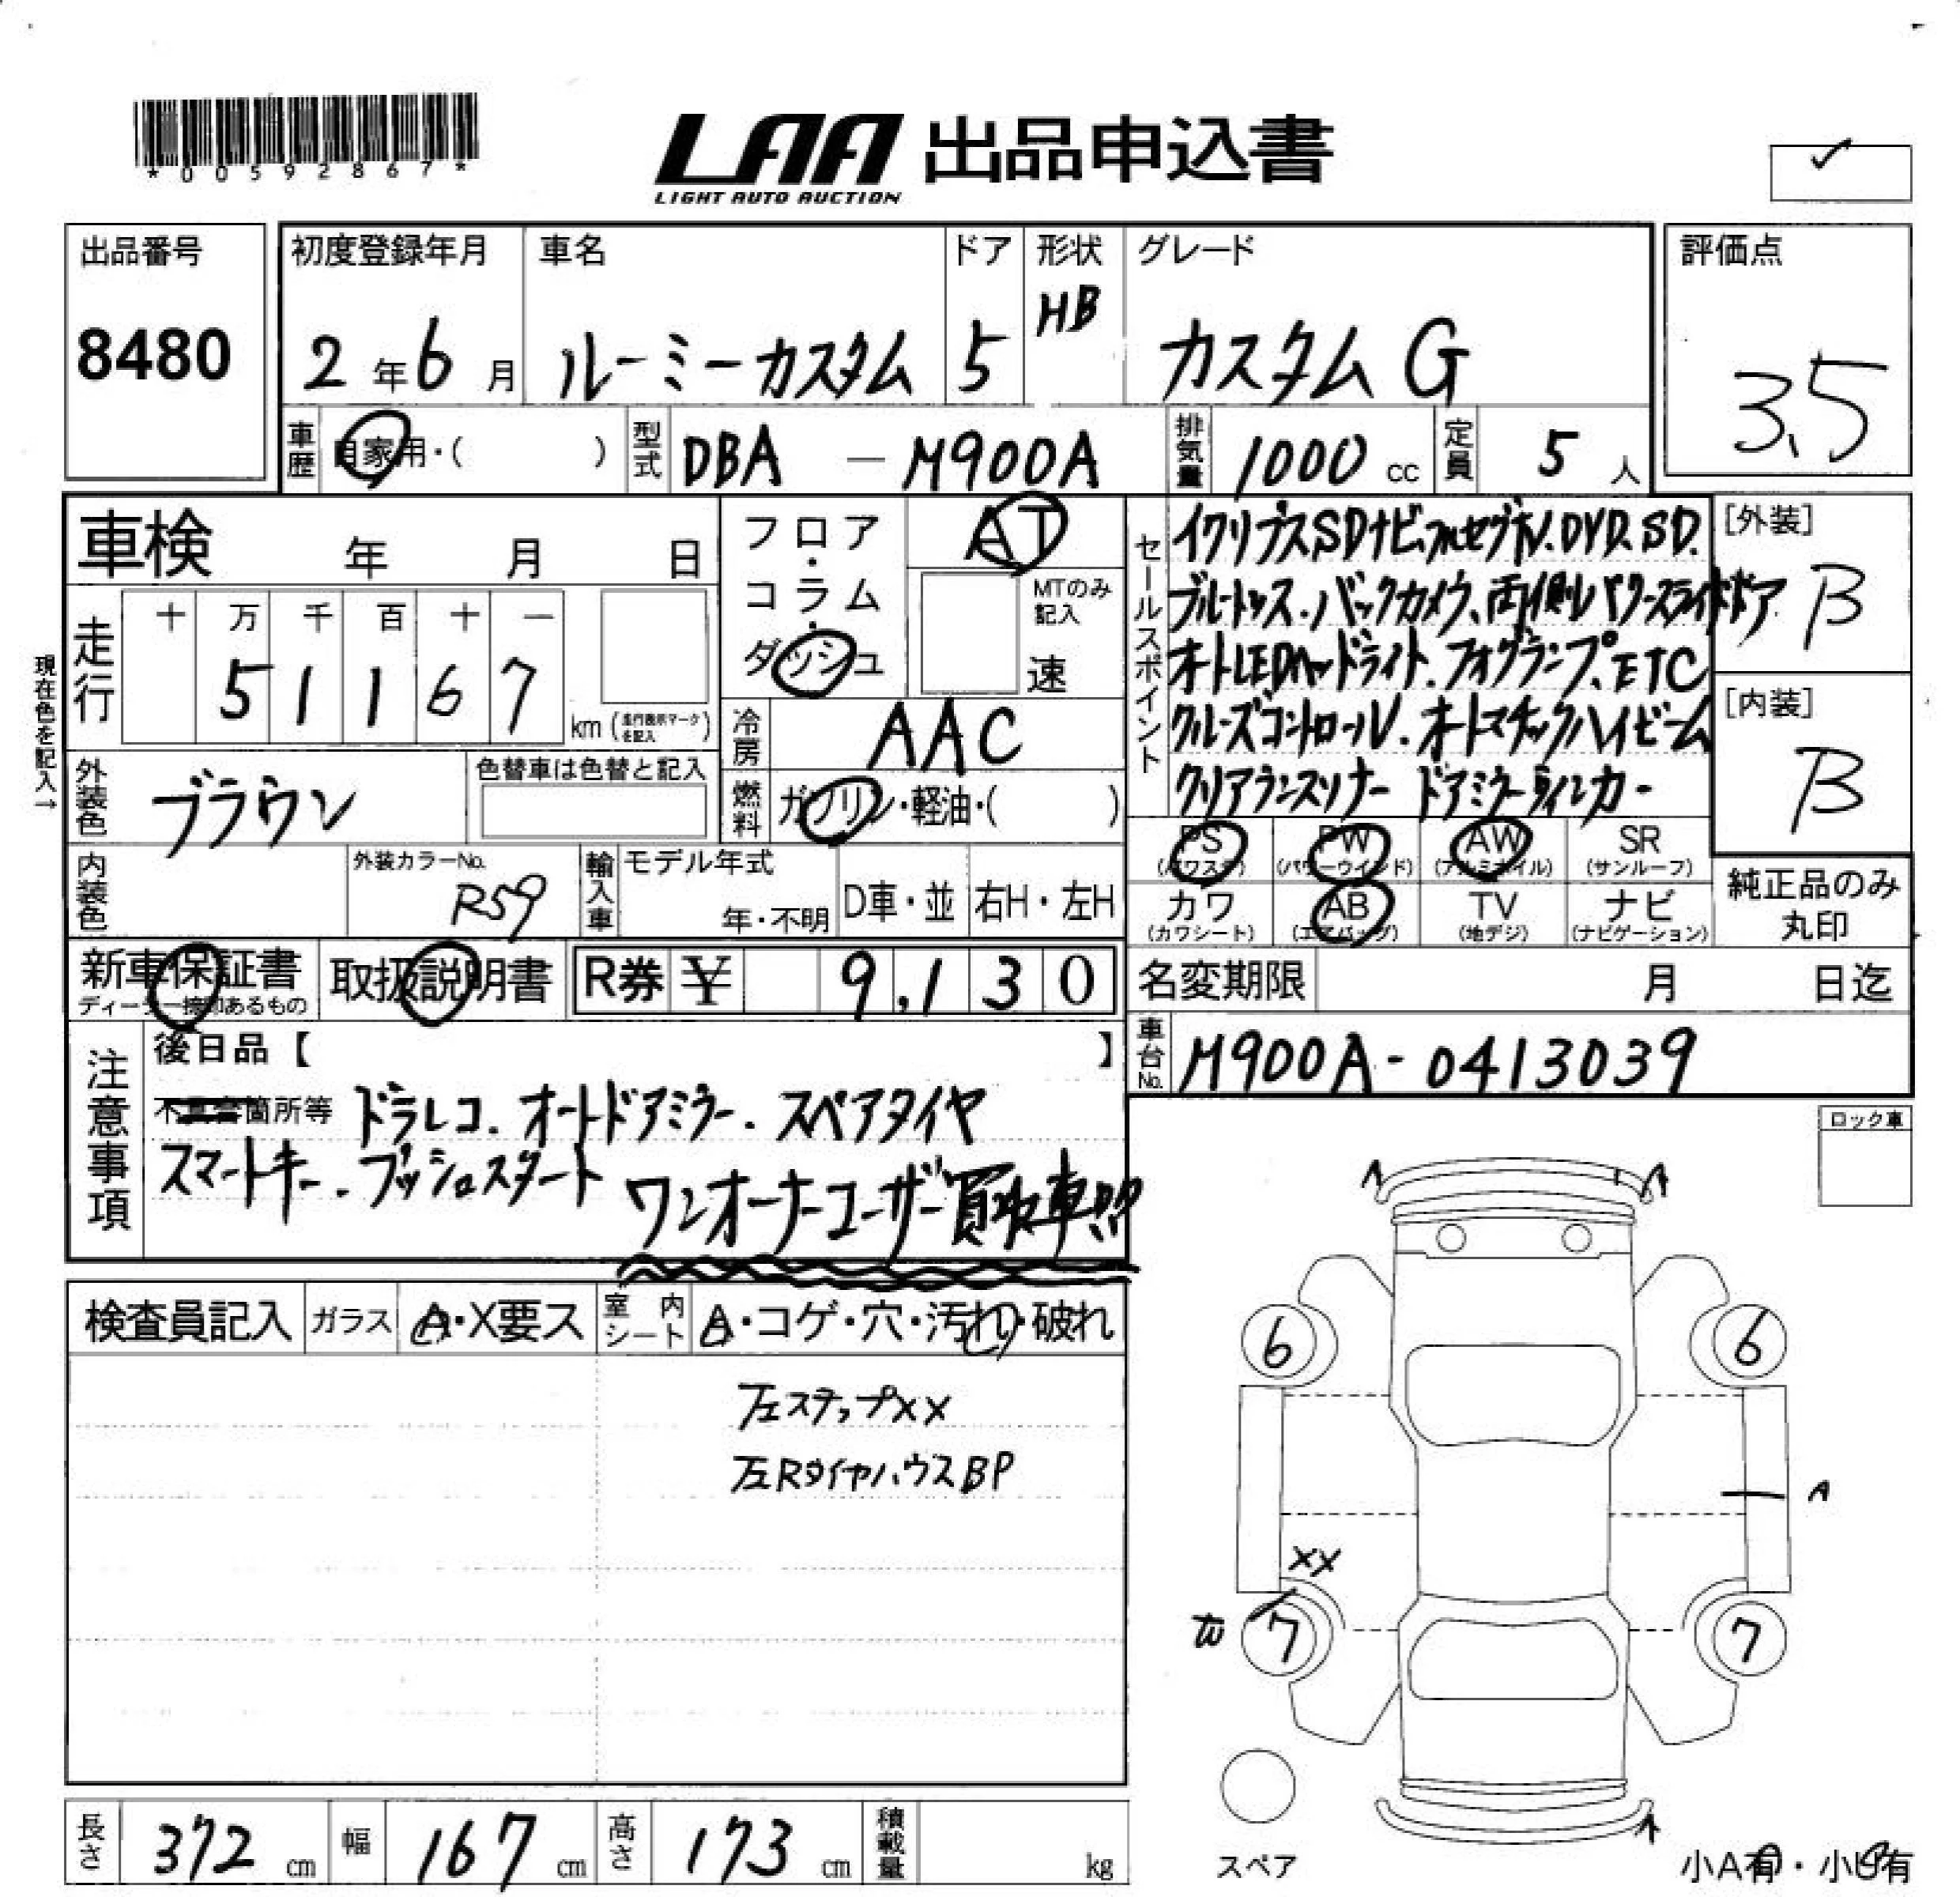 *00592867*
LAA 出品申込書
LIGHT AUTO AUCTION
出品番号
8480
初度登録年月
2年6月
車名
ルーミーカスタム
ドア
5
形状
HB
グレード
カスタム G
評価点
3.5
車歴
自家用・( )
型式
DBA - M900A
排気量
1000 cc
定員
5 人
車検 年 月 日
現在色を記入→
走行
十 万 千 百 十 一
5 1 1 6 7
km (走行表示マークを記入)
フロア・コラム・ダッシュ
AT
MTのみ記入
速
冷房
AAC
燃料
ガソリン・軽油・( )
外装色
ブラウン
色替車は色替と記入
内装色
外装カラーNo.
R59
輸入車
モデル年式
年・不明
D車・並
右H・左H
セールスポイント
イクリプスSDナビ、フルセグTV.DVD.SD.
ブルートゥス.バックカメラ、両側パワースライドドア
オートLEDヘッドライト.フォグランプ、ETC
クルーズコントロール.オートマチックハイビーム
クリアランスソナー ドアミラーウィンカー
[外装]
B
[内装]
B
PS (パワステ)
PW (パワーウインド)
AW (アルミホイル)
SR (サンルーフ)
カワ (カワシート)
AB (エアバッグ)
TV (地デジ)
ナビ (ナビゲーション)
純正品のみ丸印
新車保証書
ディーラー捺印あるもの
取扱説明書
R券 ¥ 9,130
名変期限 月 日迄
車台No.
M900A-0413039
注意事項
後日品【 】
不具合箇所等 ドラレコ.オートドアミラー.スペアタイヤ
スマートキー.プッシュスタート
ワンオーナーユーザー買取車!!
ロック車
検査員記入
ガラス
A・X要ス
室内シート
A・コゲ・穴・汚れ・破れ
左ステップXX
左RタイヤハウスBP
A
A
6
6
A
XX
7
7
スペア
小A有・小U有
長さ
372 cm
幅
167 cm
高さ
173 cm
積載量
kg